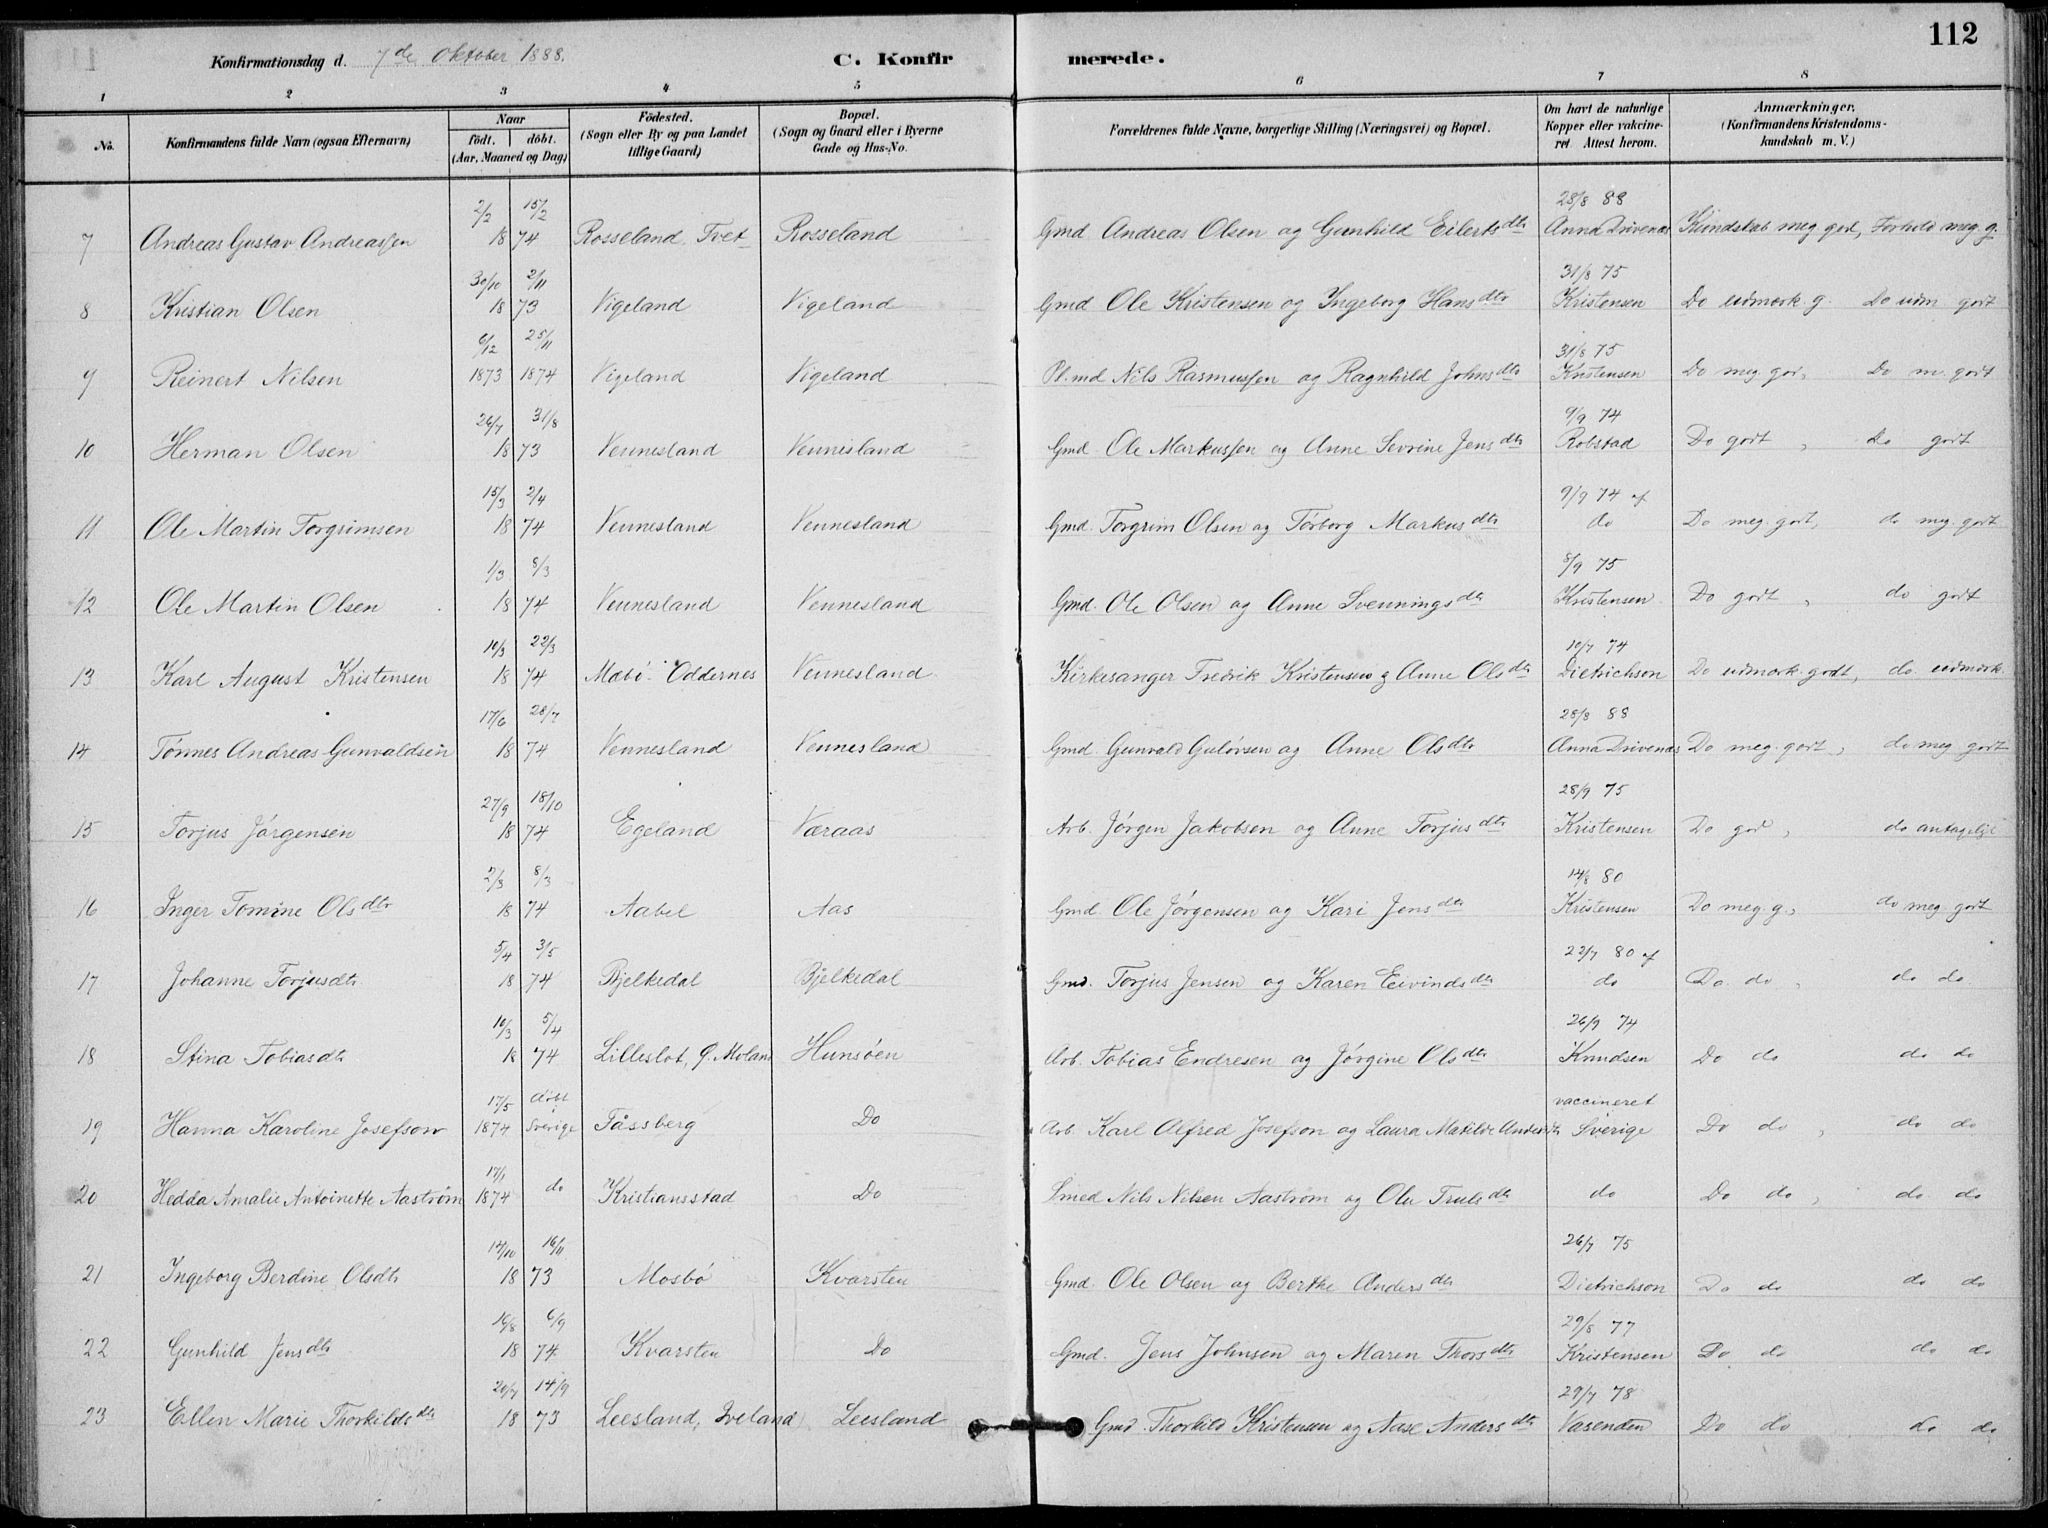 112
Konfirmationsdag d. 7de Oktober 1888. C. Konfirmerede.
1 2 3 4 5 6 7 8
No. Konfirmandens fulde Navn (ogsaa Efternavn) Naar født. døbt. (Aar, Maaned og Dag) Fødested. (Sogn eller By og paa Landet tillige Gaard) Bopæl. (Sogn og Gaard eller i Byerne Gade og Hus-No. Forældrenes fulde Navne, borgerlige Stilling (Næringsvei) og Bopæl. Om havt de naturlige Kopper eller vakcineret Attest herom. Anmærkninger. (Konfirmandens Kristendomskundskab m. V.)
2/2 15/2 28/8 88
7 Andreas Gustav Andreassen 18 74 Rosseland Tvet Rosseland Gmd Andreas Olsen og Gunhild Eilertsdtr Anna Drivenæs Kundskab meg god, Forhold meg g.
30/10 2/11 31/8 75
8 Kristian Olsen 18 73 Vigeland Vigeland Gmd Ole Kristensen og Ingeborg Hansdtr Kristensen Do udmærk. g. Do udm godt
6/12 25/11 31/8 75
9 Reinert Nilsen 1873 1874 Vigeland Vigeland Pl.md Nils Rasmussen og Ragnhild Johnsdtr Kristensen Do meg. god, Do m. godt
26/7 31/8 9/9 74
10 Herman Olsen 18 73 Vennesland Vennesland Gmd. Ole Markussen og Anne Sevrine Jensdtr Robstad Do godt, do godt
15/3 2/4 9/9 74 af
11 Ole Martin Torgrimsen 18 74 Vennesland Vennesland Gmd. Torgrim Olsen og Torborg Markusdtr do Do meg. godt, do meg. godt
1/3 8/3 8/9 75
12 Ole Martin Olsen 18 74 Vennesland Vennesland Gmd. Ole Olsen og Anne Svenningsdtr Kristensen Do godt, do godt
10/3 22/3 10/7 74
13 Karl August Kristensen 18 74 Mæbø Oddernes Vennesland Kirkesanger Fredrik Kristensen og Anne Olsdtr Dietrichson Do udmærk. godt, do. udmærk.
17/6 28/7 28/8 88
14 Tønnes Andreas Gunvaldsen 18 74 Vennesland Vennesland Gmd. Gunvald Guløvsen og Anne Olsdtr Anna Drivenæs Do meg. godt, do meg godt
27/9 18/10 28/9 75
15 Torjus Jørgensen 18 74 Egeland Væraas Arb. Jørgen Jakobsen og Anne Torjusdtr Kristensen Do god, do antagelig
2/3 8/3 14/8 80
16 Inger Tomine Olsdtr 18 74 Aabel Aas Gmd Ole Jørgensen og Kari Jensdtr Kristensen Do meg. g., do meg godt
5/4 3/5 22/7 80 af
17 Johanne Torjusdtr 18 74 Bjelkedal Bjelkedal Gmd. Torjus Jensen og Karen Eivindsdtr do Do. do, do do.
10/3 5/4 26/9 74
18 Stina Tobiasdtr 18 74 Lilleslot, Ø. Moland Hunsøen Arb. Tobias Endresen og Jørgine Olsdtr Knudsen Do do do do
17/5 døbt i vaccineret
19 Hanna Karoline Josefson 1874 Sverige Tåssberg Do Arb. Karl Alfred Josefson og Laura Matilde Andersdtr i Sverige Do do, do do
17/1
20 Hedda Amalie Antoinette Aastrøm 1874 do Kristiansstad Do Smed Nils Nilsen Aastrøm og Olu Trulsdtr do Do do, do do
14/10 16/11 26/7 75
21 Ingeborg Berdine Olsdtr 18 73 Mosbø Kvarsten Gmd. Ole Olsen og Berthe Andersdtr Dietrichson Do do do do
16/8 6/9 29/8 77
22 Gunhild Jensdtr 18 74 Kvarsten Do Gmd. Jens Johnsen og Maren Thorsdtr Kristensen Do do do do
20/7 14/9 29/7 78
23 Ellen Marie Thorkildsdtr 18 73 Leesland, Iveland Leesland Gmd. Thorkild Kristensen og Aase Andersdtr Vasenden Do do do do